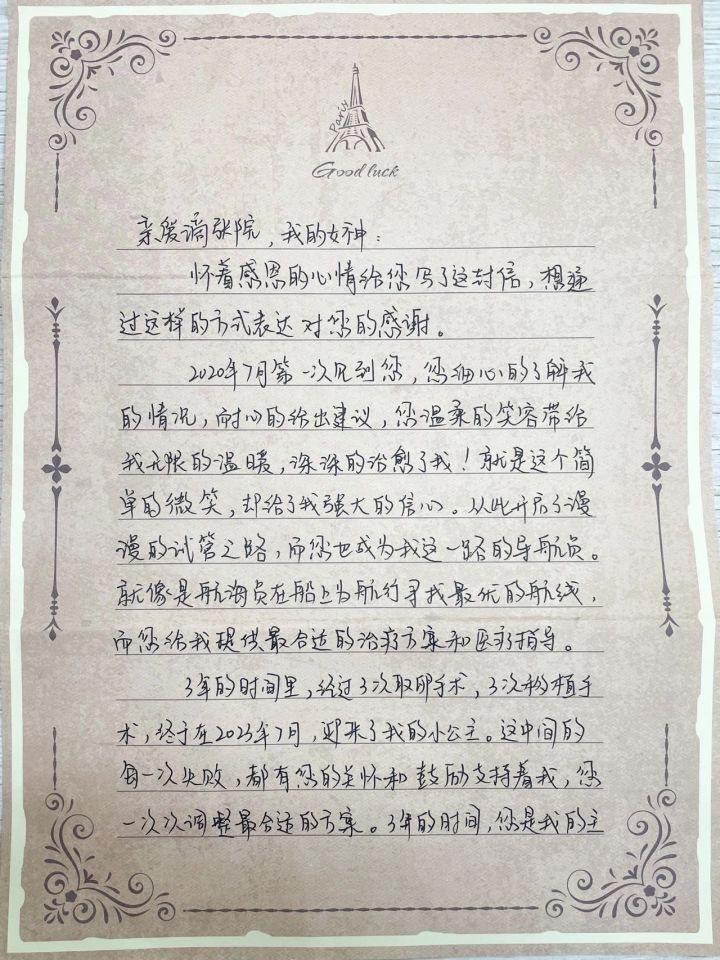 Paris
Good luck
亲爱滴张院，我的女神：
怀着感恩的心情给您写了这封信，想通
过这样的方式表达对您的感谢。
2020年7月第一次见到您，您细心的了解我
的情况，耐心的给出建议，您温柔的笑容带给
我无限的温暖，深深的治愈了我！就是这个简
单的微笑，却给了我强大的信心。从此开启了漫
漫的试管之路，而您也成为我这一路的导航员。
就像是航海员在船上为航行寻找最优的航线，
而您给我提供最合适的治疗方案和医疗指导。
3年的时间里，经过3次取卵手术，3次移植手
术，终于在2023年7月，迎来了我的小公主。这中间的
每一次失败，都有您的关怀和鼓励支持着我，您
一次次调整最合适的方案。3年的时间，您是我的主